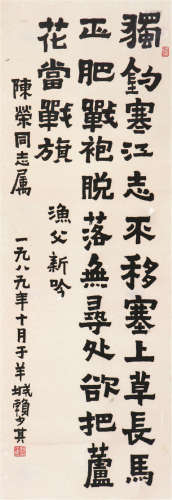 獨釣塞江志不移塞上草長馬
正肥戰袍脫落無尋處欲把蘆
花當戰旗
漁父新吟
陳榮同志属
一九八九年十月于羊城賴少其